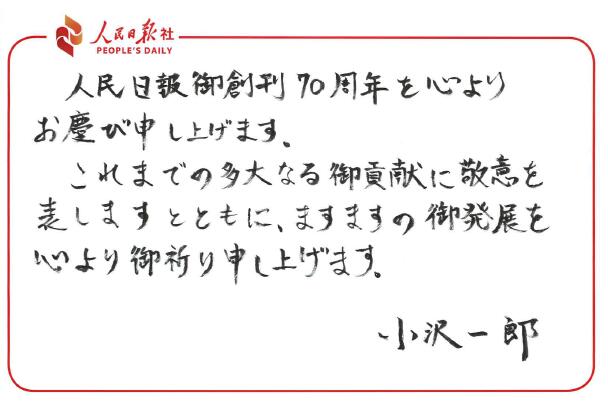 人民日报社
PEOPLE'S DAILY
人民日報御創刊70周年を心より
お慶び申し上げます。
これまでの多大なる御貢献に敬意を
表しますとともに、ますますの御発展を
心より御祈り申し上げます。
小沢一郎